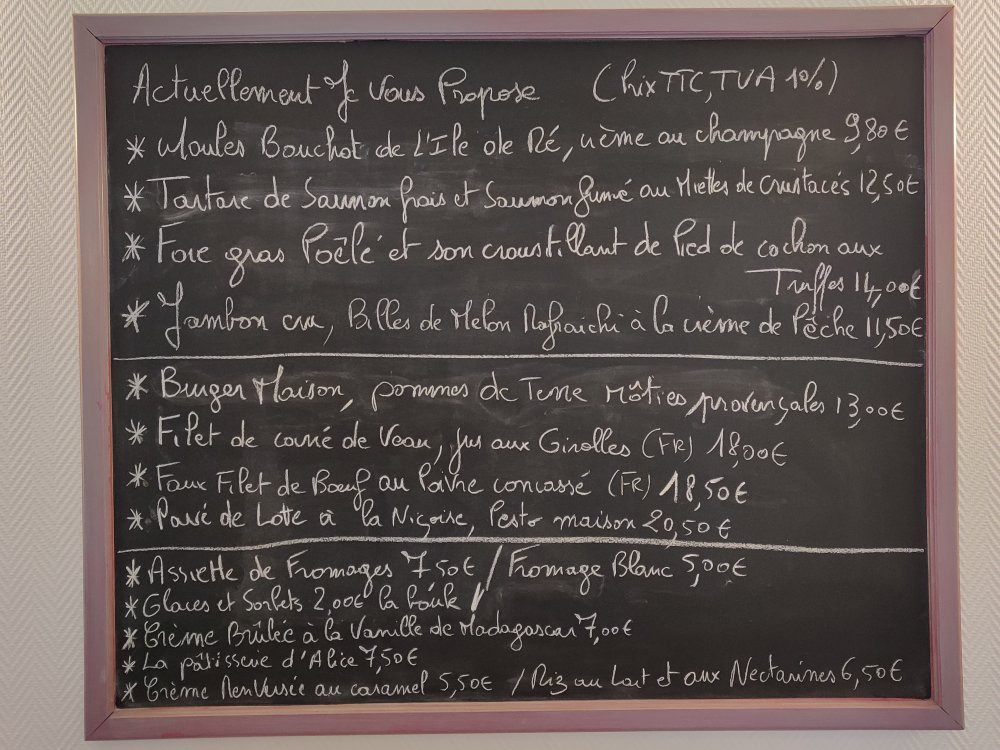 Actuellement Je Vous Propose (Prix TTC, TVA 10%)
* Moules Bouchot de L'Ile de Ré, crème au champagne 9,80 €
* Tartare de Saumon frais et Saumon fumé au Miettes de crustacés 12,50€
* Foie gras Poêlé et son croustillant de Pied de cochon aux
Truffes 14,00€
* Jambon cru, Billes de Melon Rafraichi à la crème de Pêche 11,50€
* Burger Maison, pommes de Terre rôties provençales 13,00€
* Filet de carré de Veau, jus aux Girolles (FR) 18,00€
* Faux Filet de Bœuf au Poivre concassé (FR) 18,50€
* Pavé de Lotte à la Niçoise, Pesto maison 20,50€
* Assiette de Fromages 7 50€ / Fromage Blanc 5,00€
* Glaces et Sorbets 2,00€ la boule /
* Crème Brûlée à la Vanille de Madagascar 7,00€
* La pâtisserie d'Alice 7,50€
* Crème Renversée au caramel 5,50€ / Riz au Lait et aux Nectarines 6,50€